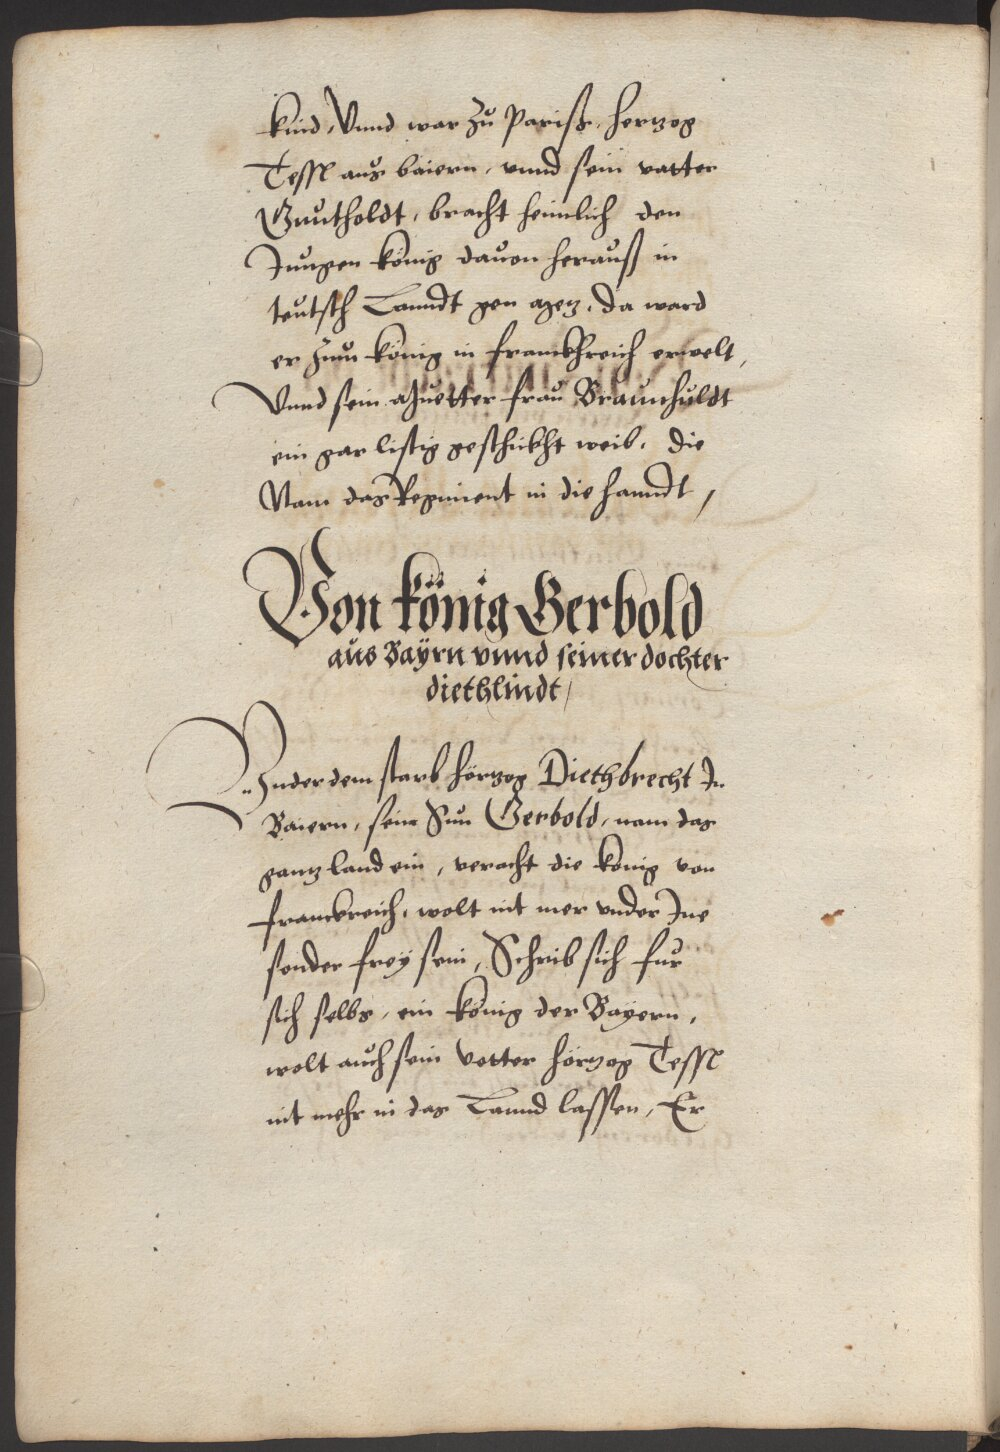 kind, Vnnd war zu Pariß, hertzog
Tessl aus baiern, vnnd sein vatter
Gruntholdt, bracht heimlich den
Jungen könig dauon herauß in
teutsch Lanndt gen Metz, da ward
er zum könig in franckhreich erwelt,
Vnnd sein Muetter frau Braunhuldt
ein gar listig geschickht weib, die
Nam das Regiment in die hanndt,
Von könig Gerbold
aus Bayrn vnnd seiner dochter
diethlindt,
Vnder dem starb hörtzog Diethbrecht In
Baiern, sein Sun Gerbold, nam das
gantz land ein, veracht die könig von
franckreich, wolt nit mer vnder Ine
sonder frey sein, Schrib sich fur
sich selbs, ein könig der Bayern,
wolt auch sein Vetter hörtzog Tessl
nit mehr in das Lannd lassen, Er